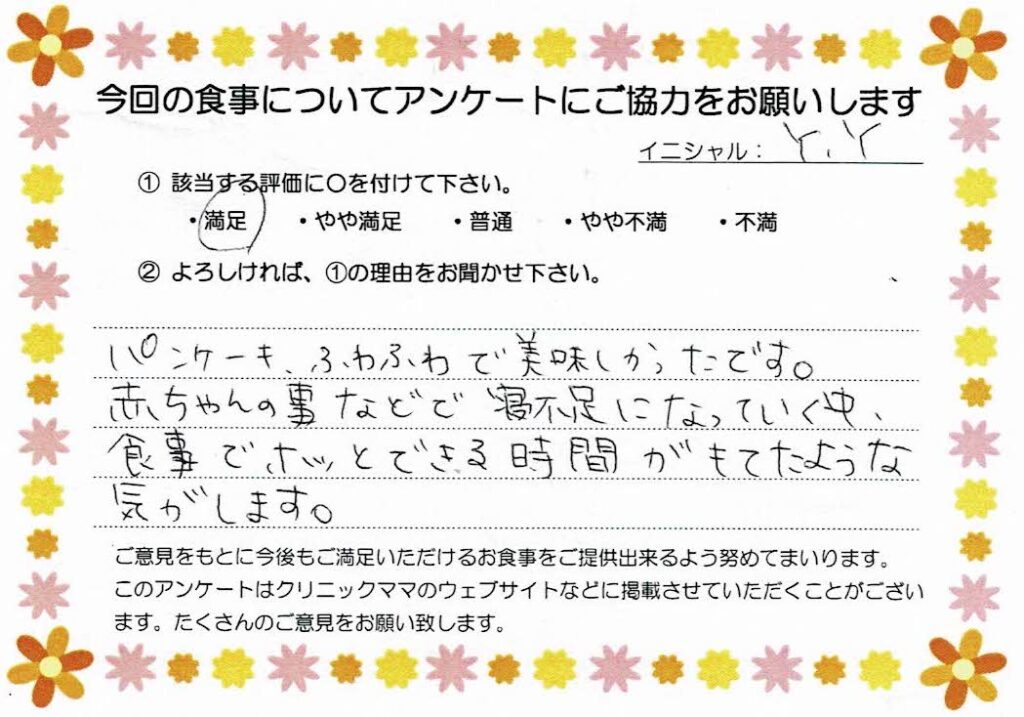 今回の食事についてアンケートにご協力をお願いします
イニシャル： Y.Y
① 該当する評価に〇を付けて下さい。
・満足 ・やや満足 ・普通 ・やや不満 ・不満
② よろしければ、①の理由をお聞かせ下さい。
パンケーキ、ふわふわで美味しかったです。
赤ちゃんの事などで寝不足になっていく中、
食事でホッとできる時間がもてたような
気がします。
ご意見をもとに今後もご満足いただけるお食事をご提供出来るよう努めてまいります。
このアンケートはクリニックママのウェブサイトなどに掲載させていただくことがござい
ます。たくさんのご意見をお願い致します。